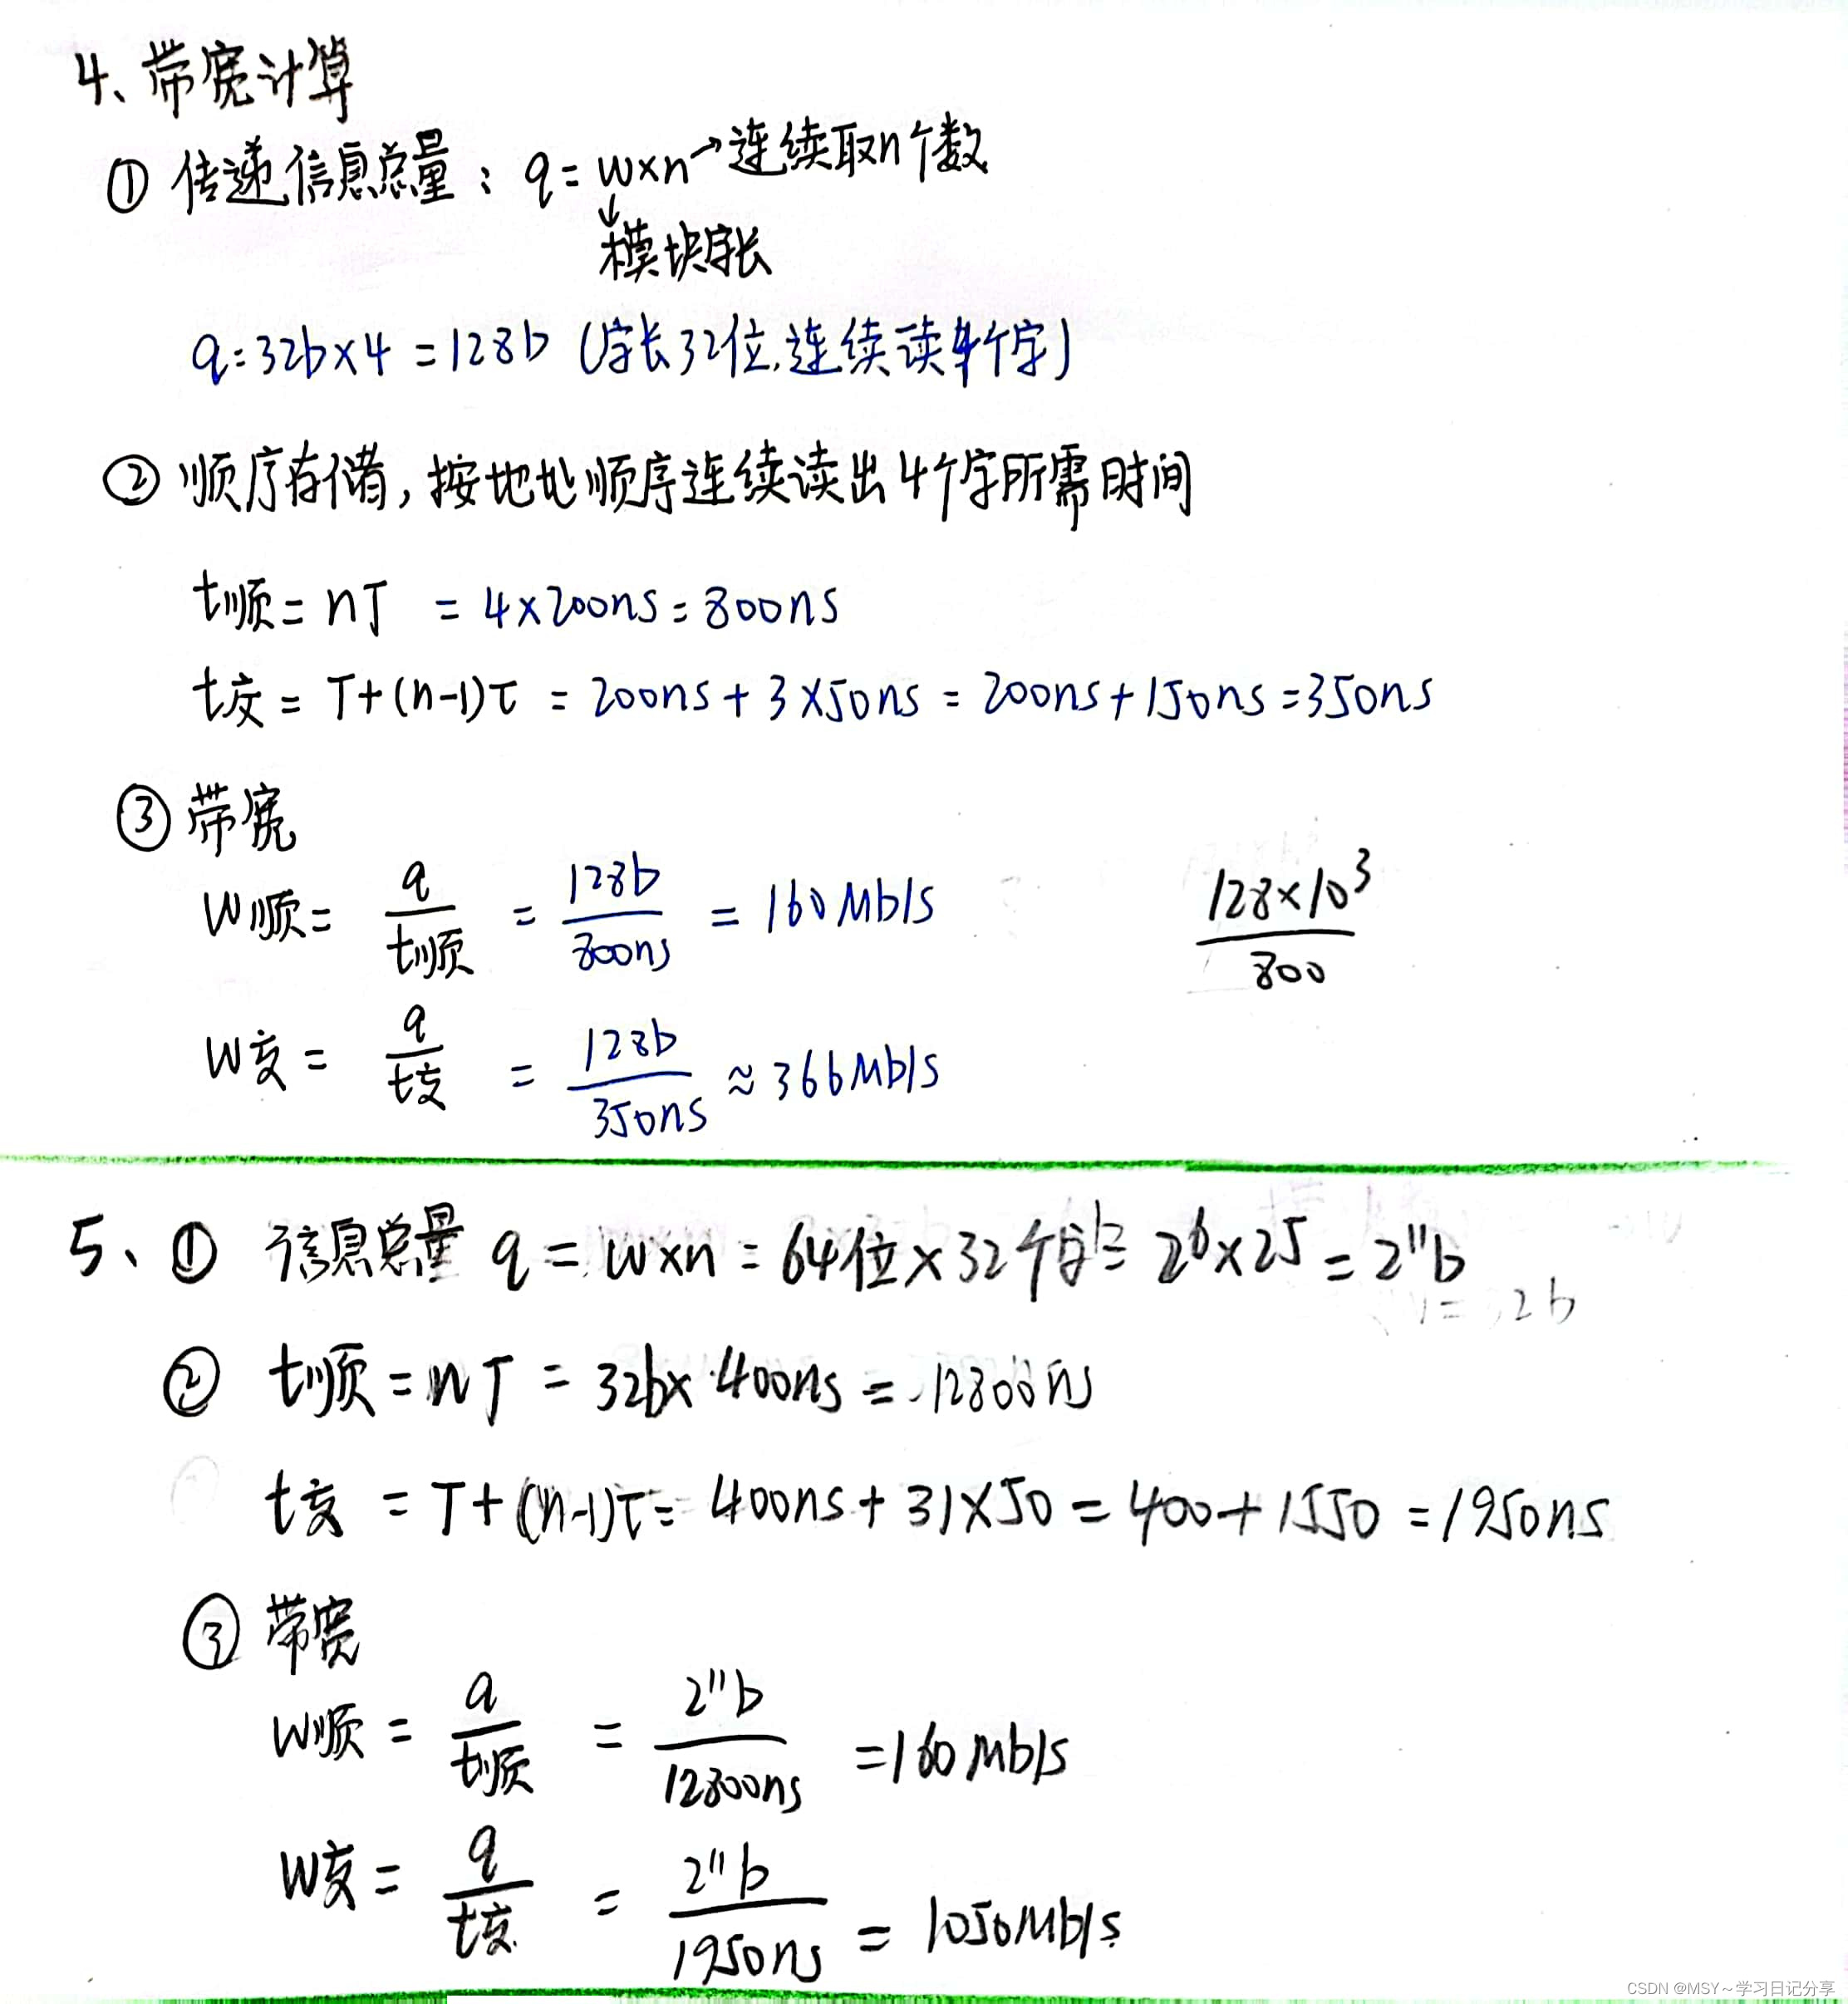 4、带宽计算
① 传递信息总量：q=w×n→连续取n个数
↓
模块字长
q=32b×4=128b (字长32位,连续读4个字)
② 顺序存储，按地址顺序连续读出4个字所需时间
t顺=nT =4×200ns=800ns
t交=T+(n-1)τ=200ns+3×50ns=200ns+150ns=350ns
③ 带宽
W顺= q/t顺 = 128b/800ns = 160Mb/s
128×10³/800
W交= q/t交 = 128b/350ns ≈366Mb/s
5、① 信息总量 q=w×n=64位×32个字=2⁶×25=2¹¹b
② t顺=nT=32b×400ns=12800ns
t交=T+(n-1)τ=400ns+31×50=400+1550=1950ns
③ 带宽
W顺= q/t顺 = 2¹¹b/12800ns =160Mb/s
W交= q/t交 = 2¹¹b/1950ns = 1050Mb/s
CSDN @MSY~学习日记分享